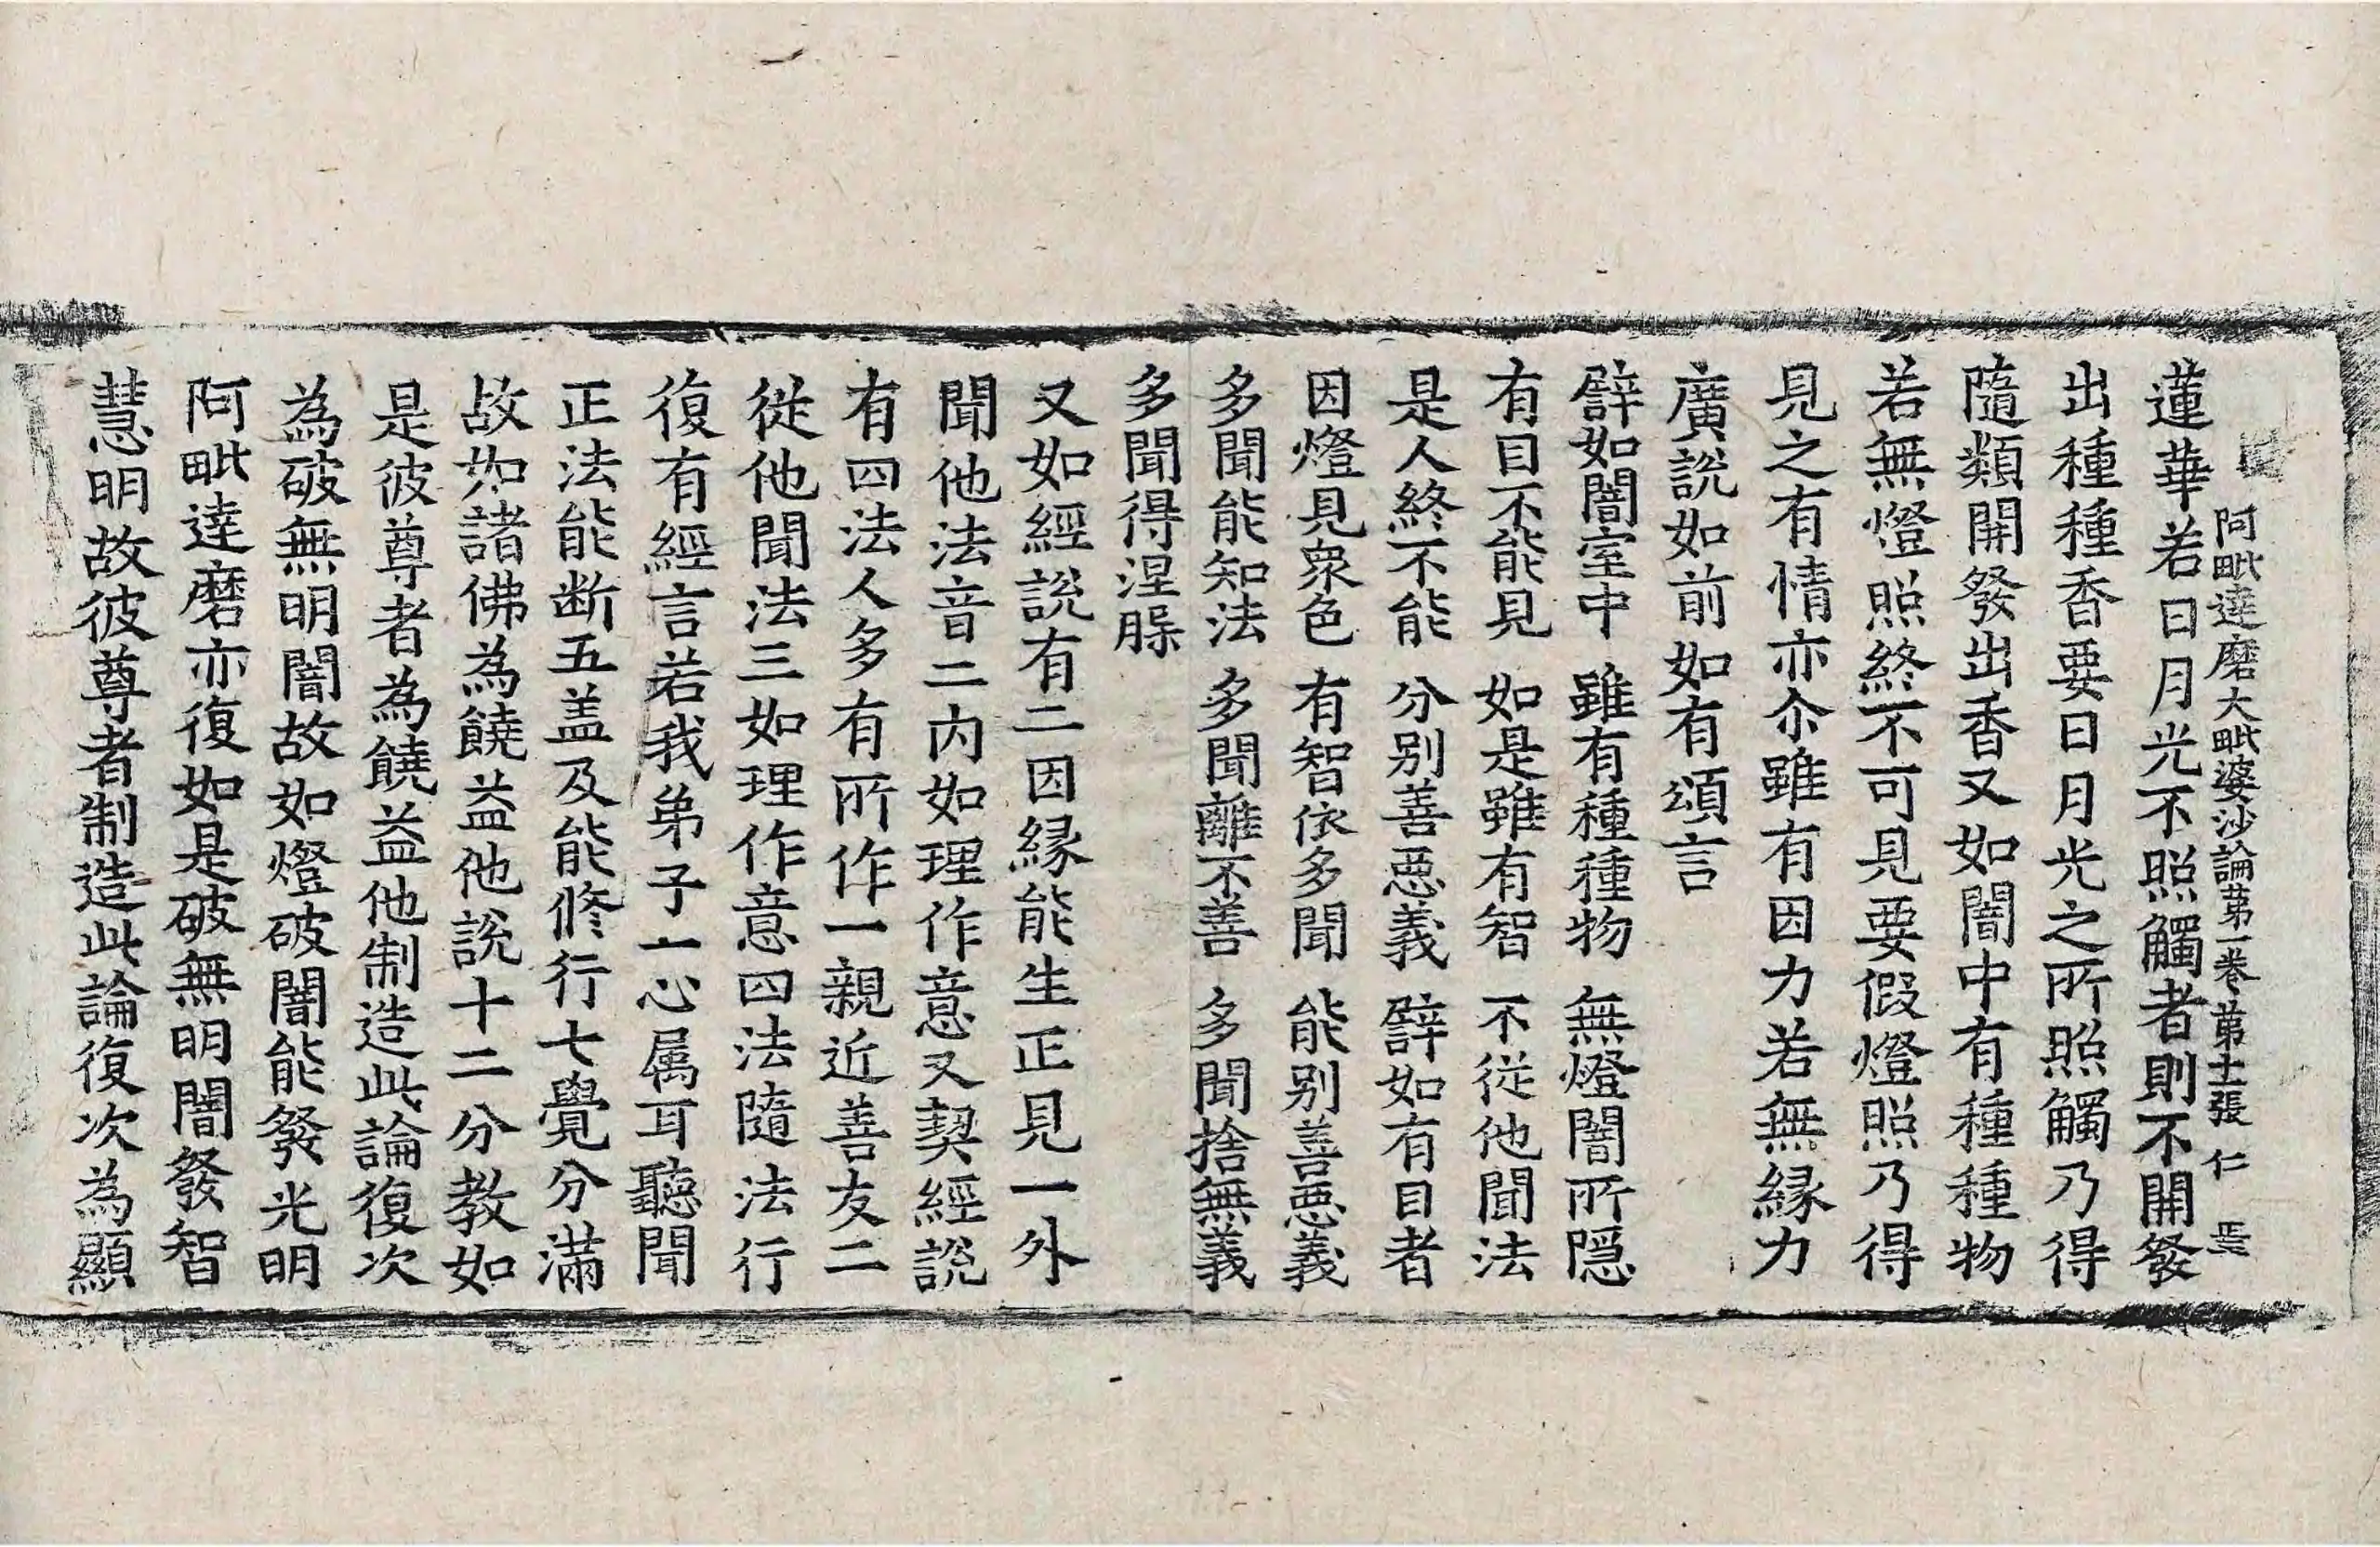 阿毗達磨大毗婆沙論苐一卷 苐十二張 仁
蓮華若日月光不照觸者則不開發
出種種香要日月光之所照觸乃得
隨類開發出香又如闇中有種種物
若無燈照終不可見要假燈照乃得
見之有情亦尒雖有因力若無縁力
廣説如前如有頌言
譬如闇室中 雖有種種物 無燈闇所隠
有目不能見 如是雖有智 不從他聞法
是人終不能 分别善惡義 譬如有目者
因燈見衆色 有智依多聞 能别善惡義
多聞能知法 多聞離不善 多聞捨無義
多聞得涅槃
又如經説有二因縁能生正見一外
聞他法音二内如理作意又契經説
有四法人多有所作一親近善友二
從他聞法三如理作意四法隨法行
復有經言若我弟子一心属耳聽聞
正法能断五盖及能修行七覺分滿
故如諸佛為饒益他説十二分教如
是彼尊者為饒益他制造此論復次
為破無明闇故如燈破闇能發光明
阿毗達磨亦復如是破無明闇發智
慧明故彼尊者制造此論復次為顯